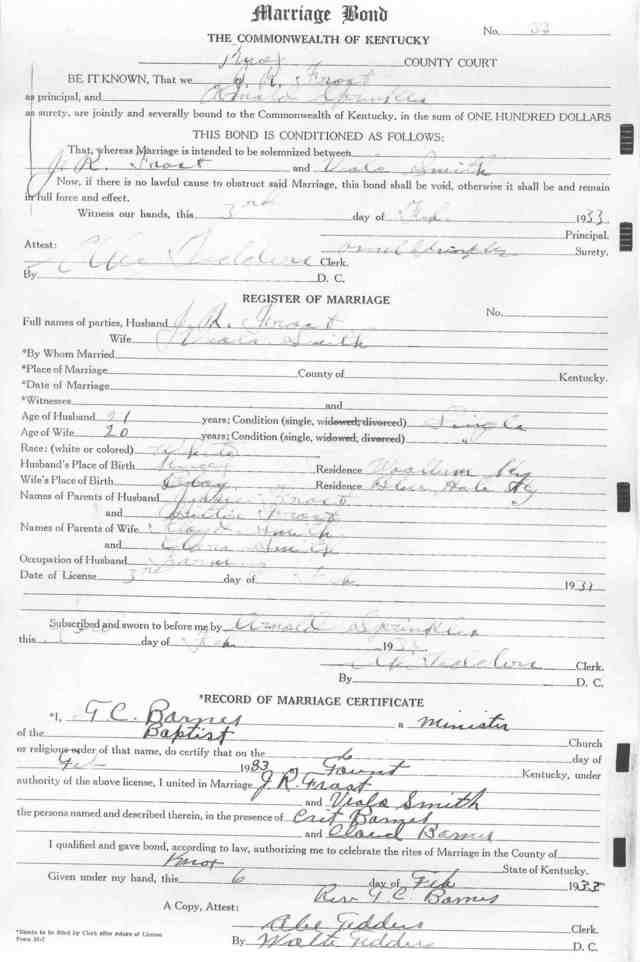 Marriage Bond
No. 33
THE COMMONWEALTH OF KENTUCKY
Knox COUNTY COURT
BE IT KNOWN, That we J. R. Frost
as principal, and Arnold Sprinkles
as surety, are jointly and severally bound to the Commonwealth of Kentucky, in the sum of ONE HUNDRED DOLLARS
THIS BOND IS CONDITIONED AS FOLLOWS:
That, whereas Marriage is intended to be solemnized between
J. R. Frost and Viola Smith
Now, if there is no lawful cause to obstruct said Marriage, this bond shall be void, otherwise it shall be and remain
in full force and effect.
Witness our hands, this 3rd day of Feb. 1933
Principal.
Attest: Surety.
Abe Tedders Clerk.
By D. C.
REGISTER OF MARRIAGE
No.
Full names of parties, Husband J. R. Frost
Wife Viola Smith
*By Whom Married
*Place of Marriage County of Kentucky.
*Date of Marriage
*Witnesses and
Age of Husband 21 years; Condition (single, widowed, divorced) Single
Age of Wife 20 years; Condition (single, widowed, divorced) "
Race: (white or colored) White
Husband's Place of Birth Residence Ky
Wife's Place of Birth Clay Residence Ky
Names of Parents of Husband Frost
and Frost
Names of Parents of Wife Smith
and Smith
Occupation of Husband
Date of License 3rd day of Feb 1933
Subscribed and sworn to before me by Arnold Sprinkles
this day of Feb 1933
Abe Tedders Clerk.
By D. C.
*RECORD OF MARRIAGE CERTIFICATE
*I, T C. Barnes a Minister
of the Baptist Church
or religious order of that name, do certify that on the 6 day of
Feb 1933 Fount Kentucky, under
authority of the above license, I united in Marriage J R Frost
and Viola Smith
the persons named and described therein, in the presence of Crit Barnes
and Claud Barnes
I qualified and gave bond, according to law, authorizing me to celebrate the rites of Marriage in the County of
Knox State of Kentucky.
Given under my hand, this 6 day of Feb 1933
Rev T. C. Barnes
A Copy, Attest:
Abe Tedders Clerk.
By Walter Tedders D. C.
*Blanks to be filed by Clerk after return of License